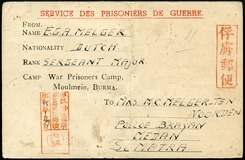 SERVICE DES PRISONNIERS DE GUERRE.
FROM:—
NAME E.S.A. MELGER
NATIONALITY DUTCH
RANK SERGEANT MAJOR
CAMP War Prisoners Camp,
Moulmein, BURMA.
俘虜郵便
TO MRS. M.C. MELGER-TEN
VOORDEN
POLOE BRAYAN
MEDAN
SUMATRA